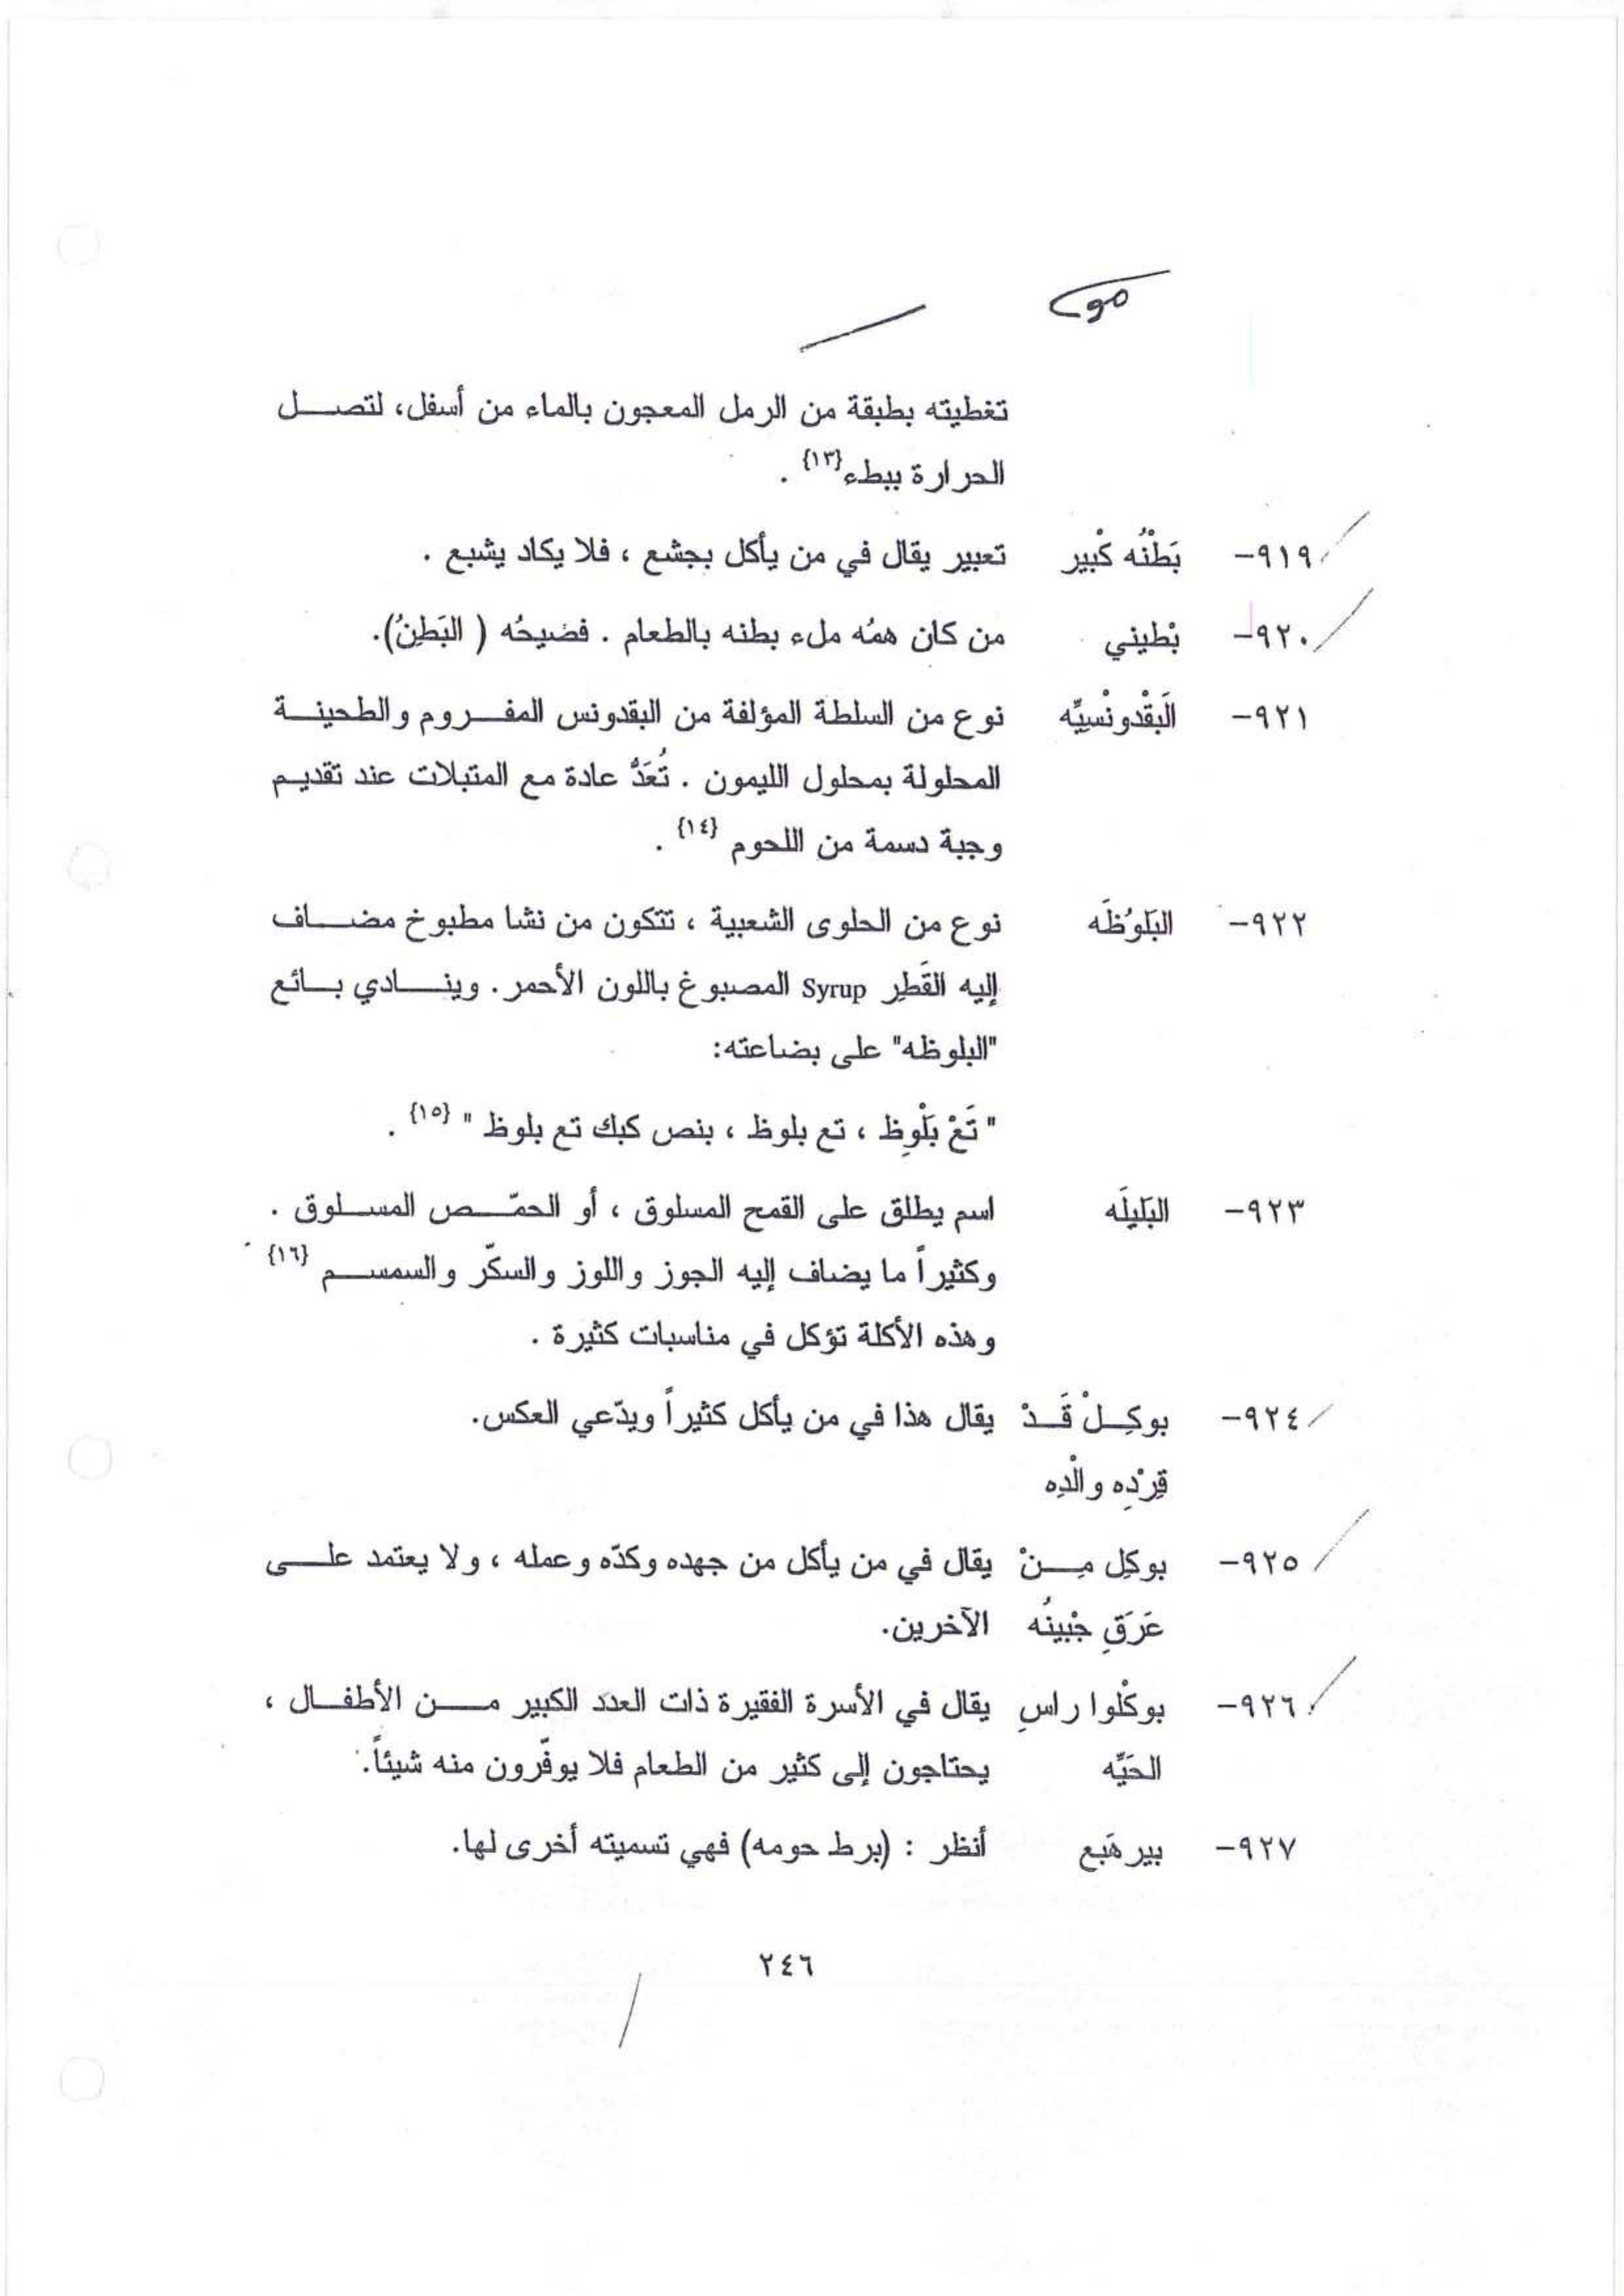 تغطيته بطبقة من الرمل المعجون بالماء من أسفل، لتصل
الحرارة ببطء{١٣} .
٩١٩- بَطْنُه كْبير تعبير يقال في من يأكل بجشع ، فلا يكاد يشبع .
٩٢٠- بْطيني من كان همُه ملء بطنه بالطعام . فضيحُه ( البَطِنُ).
٩٢١- الَبقْدونْسيِّه نوع من السلطة المؤلفة من البقدونس المفروم والطحينة
المحلولة بمحلول الليمون . تُعَدُّ عادة مع المتبلات عند تقديم
وجبة دسمة من اللحوم {١٤} .
٩٢٢- البَلوُظَه نوع من الحلوى الشعبية ، تتكون من نشا مطبوخ مضاف
إليه القَطِر Syrup المصبوغ باللون الأحمر . وينادي بائع
"البلوظه" على بضاعته:
" تَعْ بَلْوِظ ، تع بلوظ ، بنص كبك تع بلوظ " {١٥} .
٩٢٣- البَليلَه اسم يطلق على القمح المسلوق ، أو الحمّص المسلوق .
وكثيراً ما يضاف إليه الجوز واللوز والسكّر والسمسم {١٦} .
وهذه الأكلة تؤكل في مناسبات كثيرة .
٩٢٤- بوكِلْ قَدْ يقال هذا في من يأكل كثيراً ويدّعي العكس.
قِرْدِه والْدِه
٩٢٥- بوكِل مِنْ يقال في من يأكل من جهده وكدّه وعمله ، ولا يعتمد على
عَرَقِ جْبينُه الآخرين.
٩٢٦- بوكْلوا راسِ يقال في الأسرة الفقيرة ذات العدد الكبير من الأطفال ،
الحَيِّه يحتاجون إلى كثير من الطعام فلا يوفّرون منه شيئاً.
٩٢٧- بير هَبع أنظر : (برط حومه) فهي تسميته أخرى لها.
٢٤٦